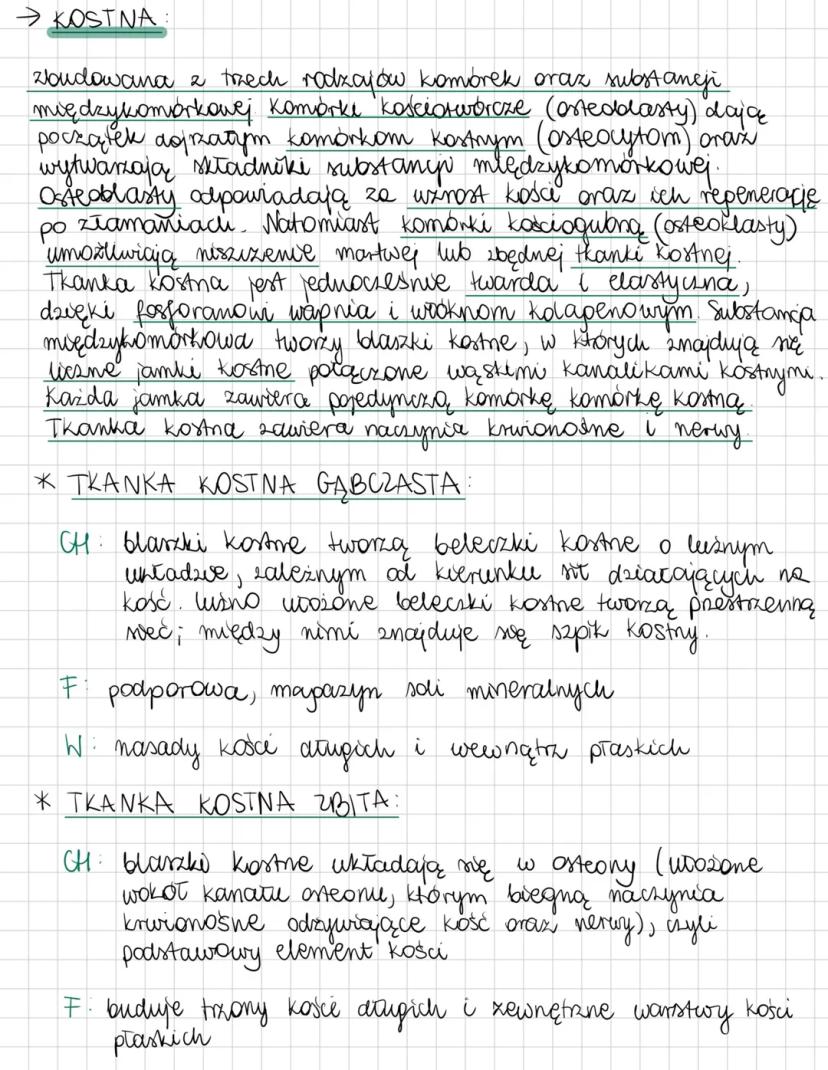 → KOSTNA:
zbudowana z trzech rodzajów komórek oraz substancji
międzykomórkowej. Komórki kościotwórcze (osteoblasty) dają
początek dojrzałym komórkom kostnym (osteocytom) oraz
wytwarzają składniki substancji międzykomórkowej.
Osteoblasty odpowiadają za wzrost kości oraz ich regenerację
po złamaniach. Natomiast komórki kościogubne (osteoklasty)
umożliwiają niszczenie martwej lub zbędnej tkanki kostnej.
Tkanka kostna jest jednocześnie twarda i elastyczna,
dzięki fosforanowi wapnia i włóknom kolagenowym. Substancja
międzykomórkowa tworzy blaszki kostne, w których znajdują się
liczne jamki kostne połączone wąskimi kanalikami kostnymi.
Każda jamka zawiera pojedynczą komórkę komórkę kostną.
Tkanka kostna zawiera naczynia krwionośne i nerwy.
* TKANKA KOSTNA GĄBCZASTA:
CH: blaszki kostne tworzą beleczki kostne o luźnym
układzie, zależnym od kierunku sił działających na
kość. luźno ułożone beleczki kostne tworzą przestrzenną
sieć; między nimi znajduje się szpik kostny.
F: podporowa, magazyn soli mineralnych
W: nasady kości długich i wewnątrz płaskich
* TKANKA KOSTNA ZBITA:
CH: blaszki kostne układają się w osteony (ułożone
wokół kanału osteonu, którym biegną naczynia
krwionośne odżywiające kość oraz nerwy), czyli
podstawowy element kości
F: buduje trzony kości długich i zewnętrzne warstwy kości
płaskich